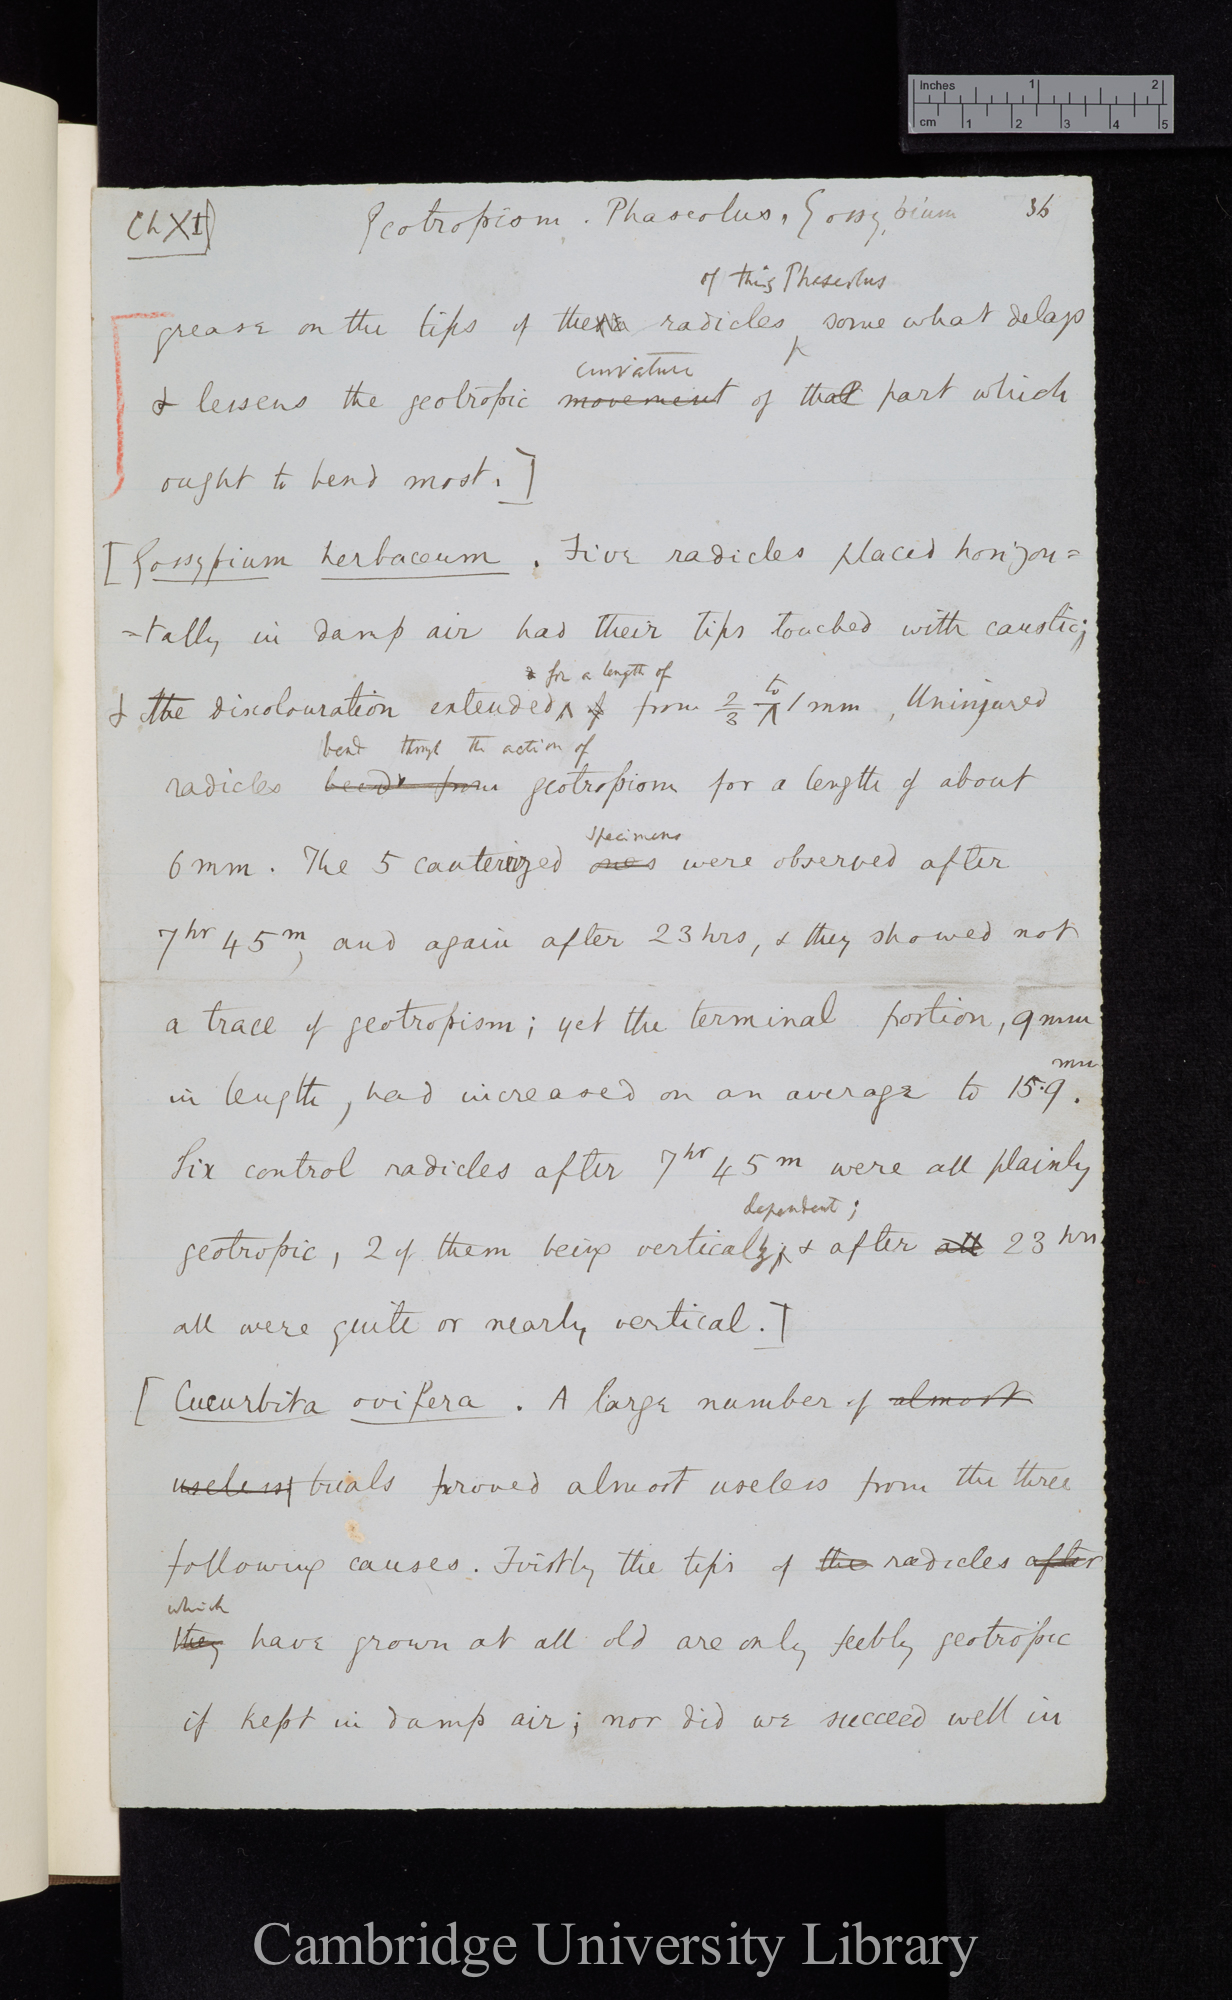 inches 1 2
cm 1 2 3 4 5
Ch XI) Geotropism. Phaseolus, Gossypium 36
of this Phaseolus
grease on the tips of the radicles some what delays
curvature
& lessens the geotropic movement of that part which
ought to bend most.]
[Gossypium herbaceum. Five radicles placed horizon=
=tally in damp air had their tips touched with caustic;
& for a length of
& the discolouration extended of from 2/3 to 1 mm, Uninjured
bend through the action of
radicles bend from geotropism for a length of about
specimens
6 mm. The 5 cauterized ones were observed after
7hr 45m, and again after 23 hrs, & they showed not
a trace of geotropism; yet the terminal portion, 9 mm
mm
in length, had increased on an average to 15.9.
Six control radicles after 7hr 45m were all plainly
dependent;
geotropic, 2 of them being vertically & after all 23 hrs
all were quite or nearly vertical.]
[Cucurbita ovifera. A large number of almost
useless trials proved almost useless from the three
following causes. Firstly the tips of the radicles after
which
they have grown at all old are only feebly geotropic
if kept in damp air; nor did we succeed well in
Cambridge University Library